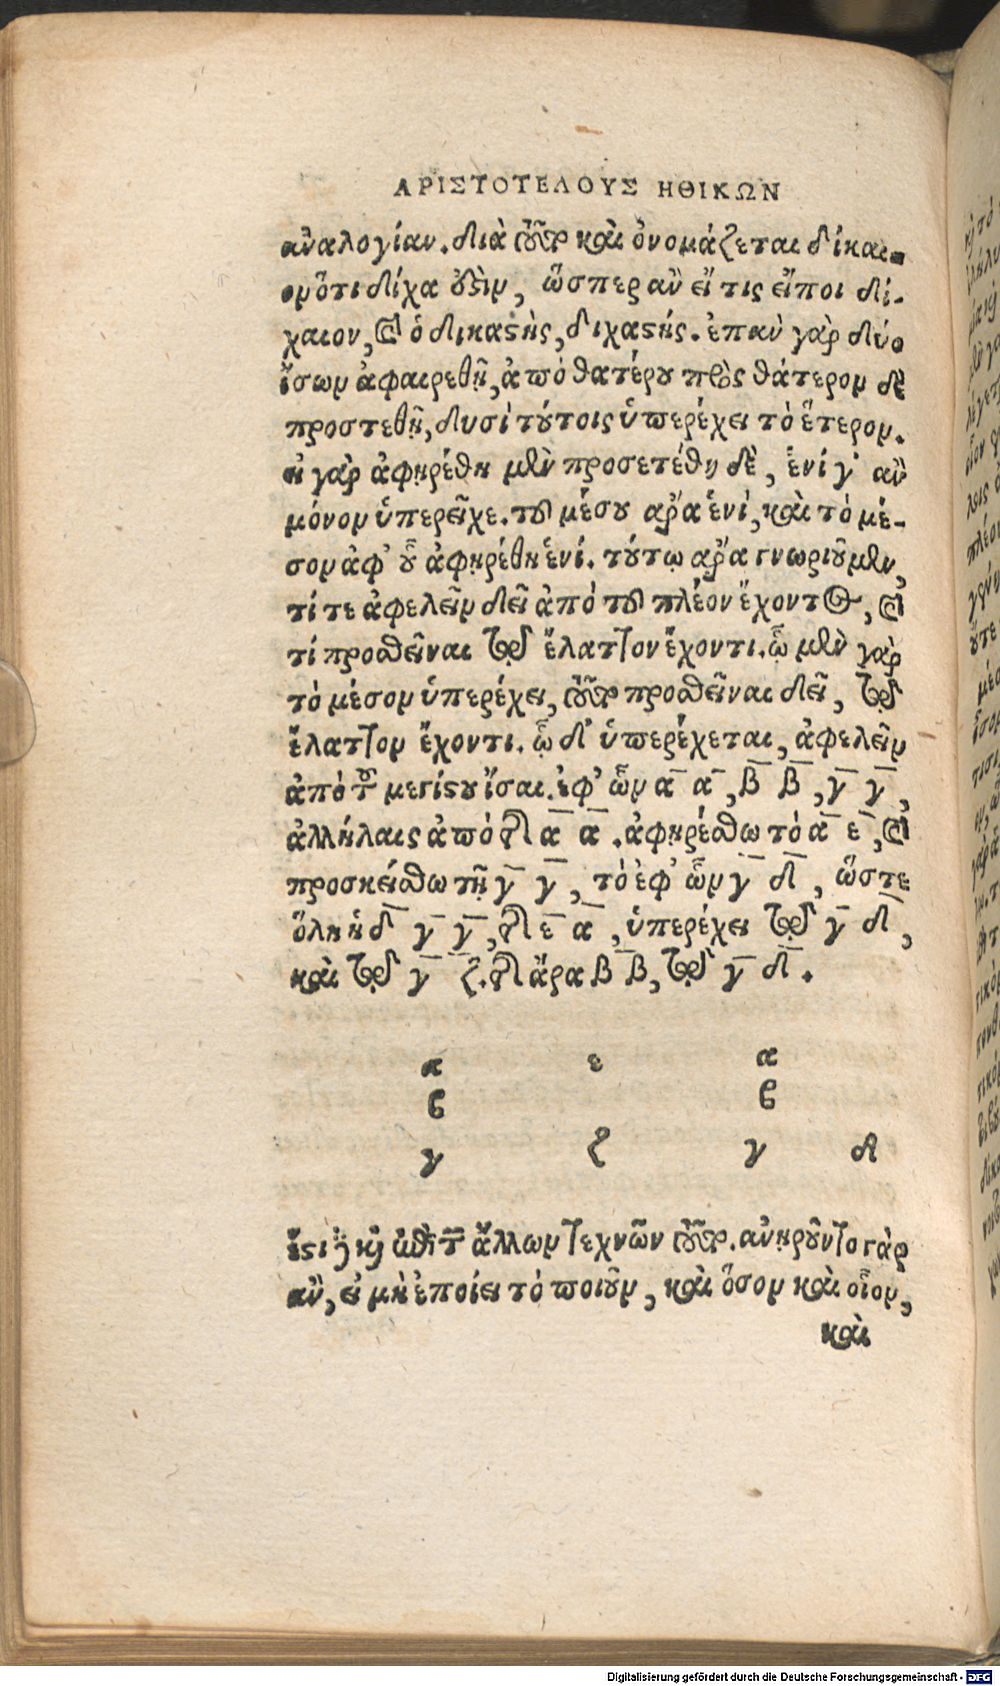 ΑΡΙΣΤΟΤΕΛΟΥΣ ΗΘΙΚΩΝ
ἀναλογίαν. διὰ τοῦτο καὶ ὀνομάζεται δίκαι-
ον ὅτι δίχα ὀϛὶν, ὥσπερ ἂν εἴ τις εἴποι δί-
χαιον, καὶ ὁ δικαϛὴς, διχαϛής. ἐπὰν γὰρ δύο
ἴσων ἀφαιρεθῇ, ἀπὸ θατέρου πρὸς θάτερον δὲ
προστεθῇ, δυσὶ τούτοις ὑπερέχει τὸ ἕτερον.
εἰ γὰρ ἀφῃρέθη μὲν προσετέθη δὲ, ἑνί γ' ἂν
μόνον ὑπερεῖχε. τοῦ μέσου ἄρα ἑνὶ, καὶ τὸ μέ-
σον ἀφ' οὗ ἀφῃρέθη ἑνί. τούτῳ ἄρα γνωριοῦμεν,
τί τε ἀφελεῖν δεῖ ἀπὸ τοῦ πλέον ἔχοντος, καὶ
τί προσθεῖναι τῷ ἔλαττον ἔχοντι. ᾧ μὲν γὰρ
τὸ μέσον ὑπερέχει, τοῦτο προσθεῖναι δεῖ, τῷ
ἔλαττον ἔχοντι. ᾧ δ' ὑπερέχεται, ἀφελεῖν
ἀπὸ τοῦ μεγίϛου ἴσαι. ἐφ' ὧν α α, β β, γ γ,
ἀλλήλαις ἀπὸ τῆς α α. ἀφῃρέσθω τὸ α ε, καὶ
προσκείσθω τῇ γ γ, τὸ ἐφ' ὧν γ δ, ὥστε
ὅλη ἡ δ γ γ, τῆς ε α, ὑπερέχει τῷ γ δ,
καὶ τῷ γ ζ. τῆς ἄρα β β, τῷ γ δ.
α ε α
β β
γ ζ γ δ
ἔϛι δὲ καὶ ἐπὶ τῶν ἄλλων τεχνῶν τοῦτο. ἀνῃροῦντο γὰρ
ἂν, εἰ μὴ ἐποίει τὸ ποιοῦν, καὶ ὅσον καὶ οἷον,
καὶ
Digitalisierung gefördert durch die Deutsche Forschungsgemeinschaft - DFG